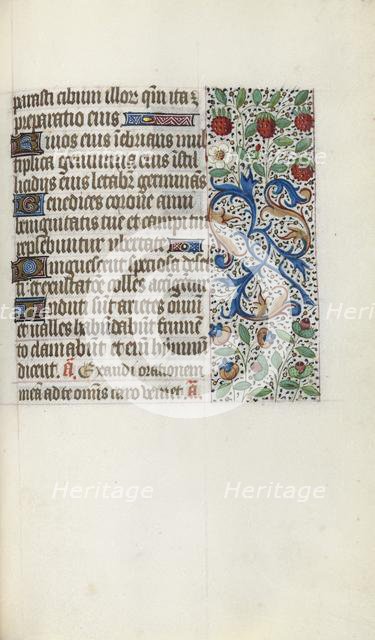 parasti cibum illor qm ita ē
preparatio eius
Rivos eius inebrians mul
tiplica genimina eius in stil
licidiis eius letabit germinās
Benedices corone anni
benignitatis tue et campi tui
replebuntur ubertate
Pinguescent speciosa deser
ti et exultatiōe colles accingent
Induti sunt arietes oviū
et valles habūdabūt frumē
to clamabūt et eni hymnū
dicent. ā Exaudi orationem
meā ad te omīs caro veniet. ā
Heritage
Heritage
Heritage
Heritage